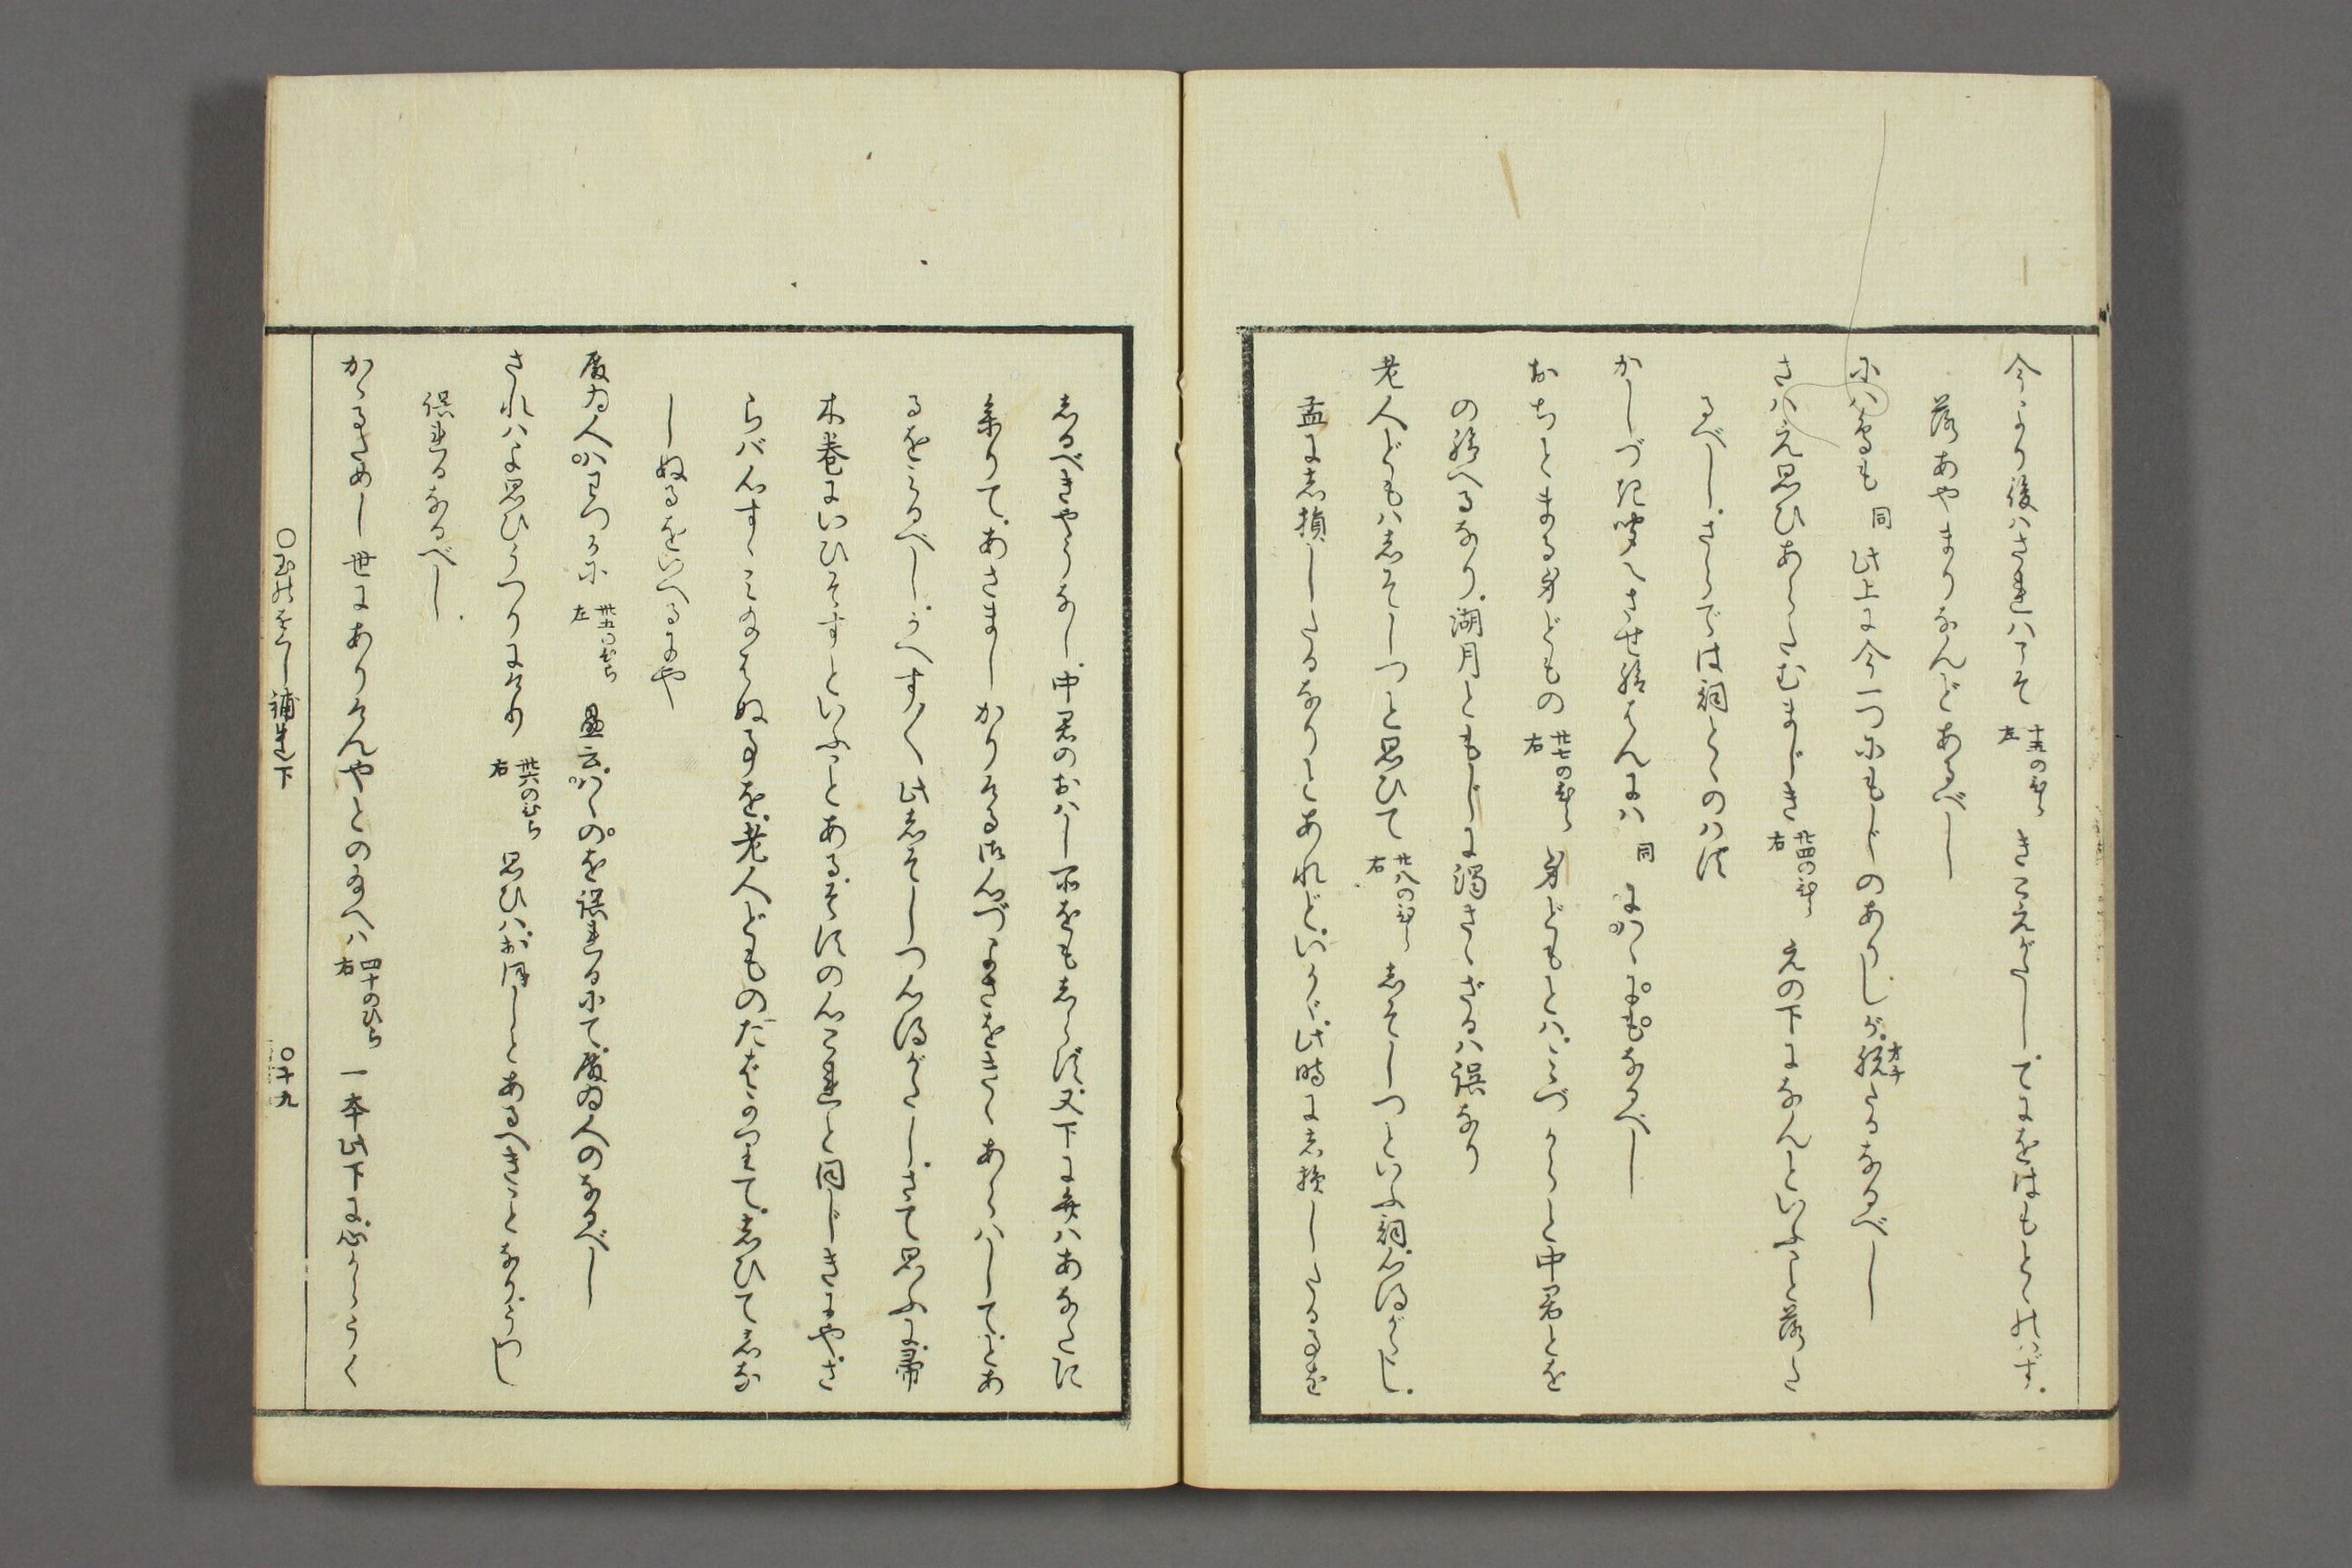 今より後はされはこそ 十五のひら左 きこえがたし。てにをはもとゝのはず。
落あやまりなんどあるべし
にはかも 同 此上に今一つにもじのありしが。脱オチたるなるべし
さはえ思ひあらたむまじき 廿四のひら右 えの下になんといふこと落た
るべし。さらでは詞とゝのはず
かしづき聞えさせ給はんには 同 にはゝにもなるべし
おちとまる身どもの 廿七のひら右 身どもとは。みづからと中君とを
の給へるなり。湖月ともじに濁さゝざるは誤なり
老人どもはしそしつと思ひて 廿八のひら右 しそしつといふ詞。心得がたし。
孟に志損したるなりとあれど。いかゞ。此時にし損したる事を
しるべきやうなし。中君のおはし所をもしらず。又下に弁はあなたに
参りて。あさましかりける御心づよさをきゝあらはして。とあ
るをみるべし。かへす〲此しそしつ心得がたし。さて思ふに。帚
木巻にいひそすといふことある。そすの心これと同じきにや。さ
らば心すゝみのせぬ事を。老人どものだましのせて。しひてしな
しぬるをいへるにや
廣ゐ人はそこらに 卅五のひら左 是云。はゝのを誤れるにて。廣ゐ人のなるべし
されはよ思ひうつりにけり 卅六のひら右 思ひは。おぼしとあるべきことなり。うつし
誤れるなるべし
かゝるためし世にありけんやとの給へは 四十のひら右 一本此下に。心うく
○玉のをぐし補遺下 ○十九